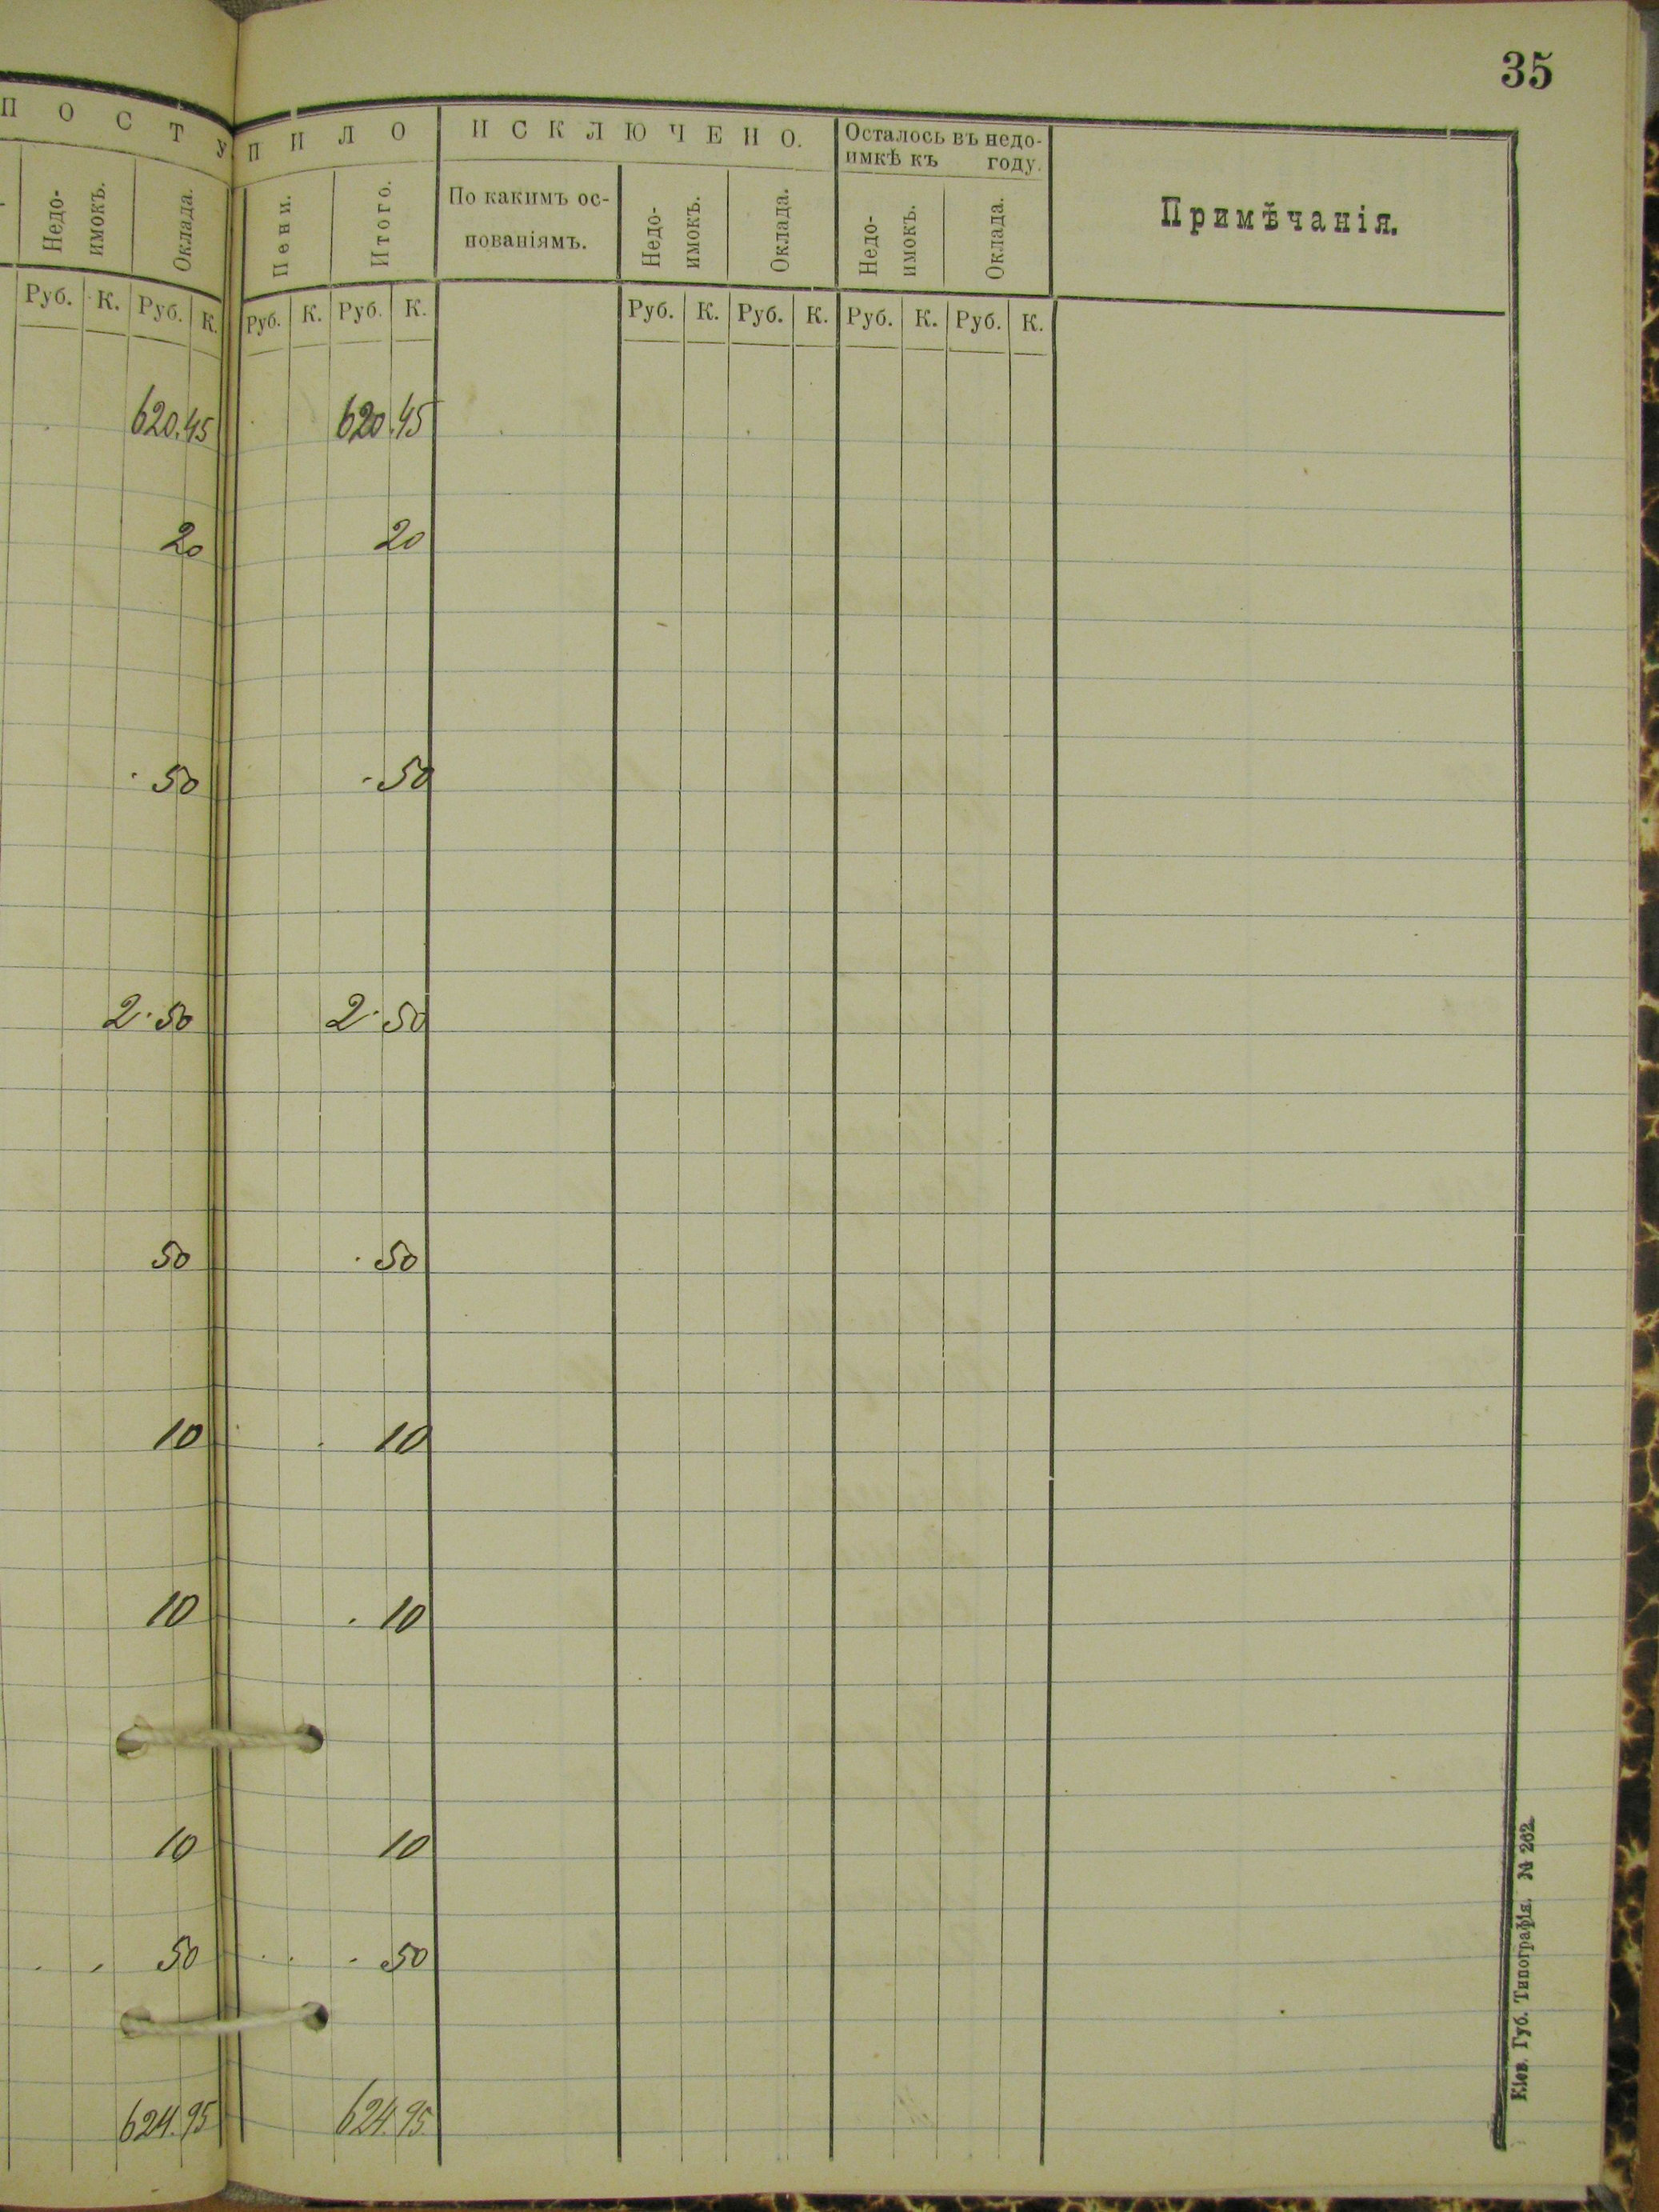 35
ПОСТУПИЛО ИСКЛЮЧЕНО. Осталось въ недо-
имкѣ къ году.
Недо-
имокъ. Оклада. Пени. Итого. По какимъ ос-
нованіямъ. Недо-
имокъ. Оклада. Недо-
имокъ. Оклада. Примѣчанія.
Руб. К. Руб. К. Руб. К. Руб. К. Руб. К. Руб. К. Руб. К. Руб. К.
620.45 620.45
20 20
50 50
2.50 2.50
50 50
10 10
10 10
10 10
50 50
624.95 624.95
Кіев. Губ. Типографія. № 262.